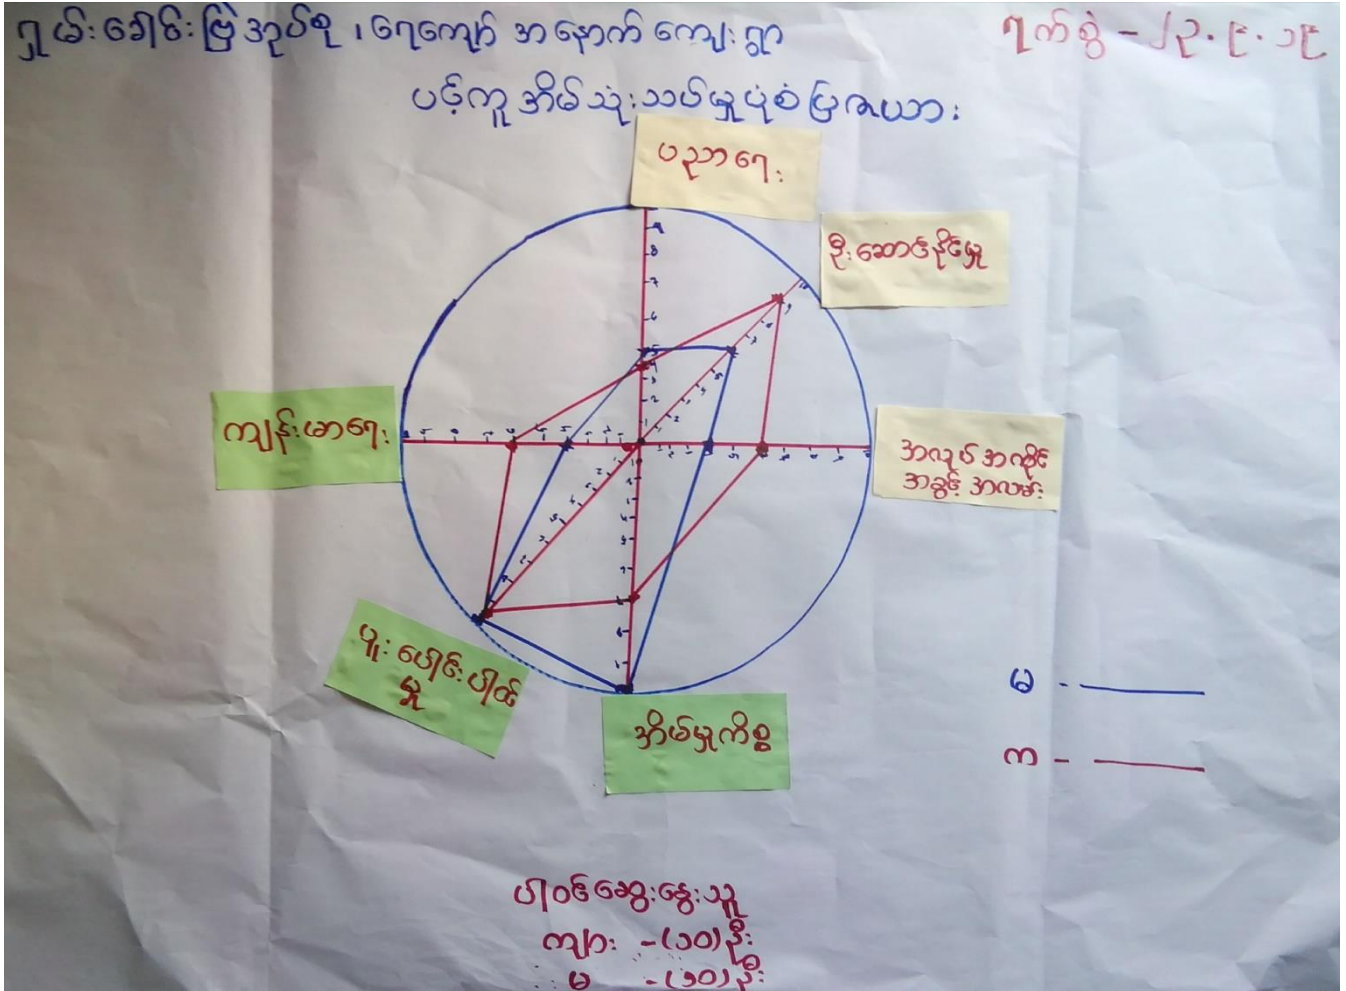 ရှမ်းခေါင်းဖြဲအုပ်စု ၊ ရေကျော် အနောက် ကျေးရွာ
ရက်စွဲ - ၂၃.၉.၁၉
ပင့်ကူအိမ်သုံးသပ်မှုပုံစံပြဇယား
ပညာရေး
ဦးဆောင်နိုင်မှု
ကျန်းမာရေး
အလုပ်အကိုင်
အခွင့်အလမ်း
ပူးပေါင်းပါဝင်
မှု
အိမ်မှုကိစ္စ
မ -
က -
ပါဝင်ဆွေးနွေးသူ
ကျား -(၁၀)ဦး
မ -(၁၀)ဦး